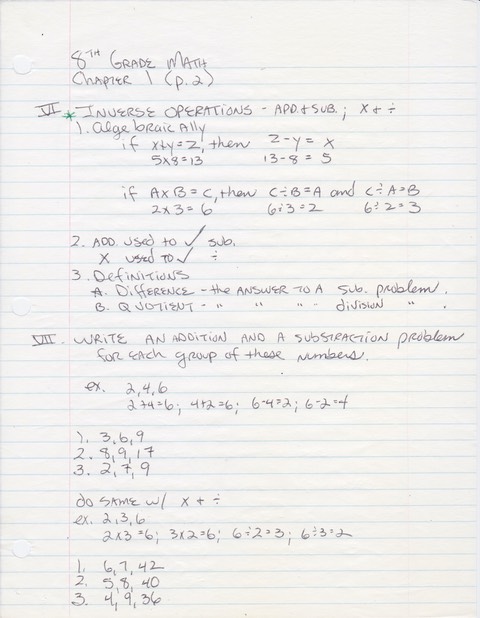 8TH GRADE MATH
Chapter 1 (p.2)
VI * INVERSE OPERATIONS - ADD. + SUB. ; X + ÷
1. AlgebraicAlly
if x+y=z, then z-y=x
5x8=13 13-8=5
if AxB=C, then C÷B=A and C÷A=B
2x3=6 6÷3=2 6÷2=3
2. ADD. used to ✓ sub.
X used to ✓ ÷
3. Definitions
A. Difference - the ANSWER TO A sub. problem.
B. QUOTIENT - " " " " division " .
VII. WRITE AN ADDITION AND A SUBSTRACTION problem
for each group of these numbers.
ex. 2,4,6
2+4=6; 4+2=6; 6-4=2; 6-2=4
1. 3,6,9
2. 8,9,17
3. 2,7,9
do SAME w/ x + ÷
ex. 2,3,6
2x3=6; 3x2=6; 6÷2=3; 6÷3=2
1. 6,7,42
2. 5,8,40
3. 4,9,36